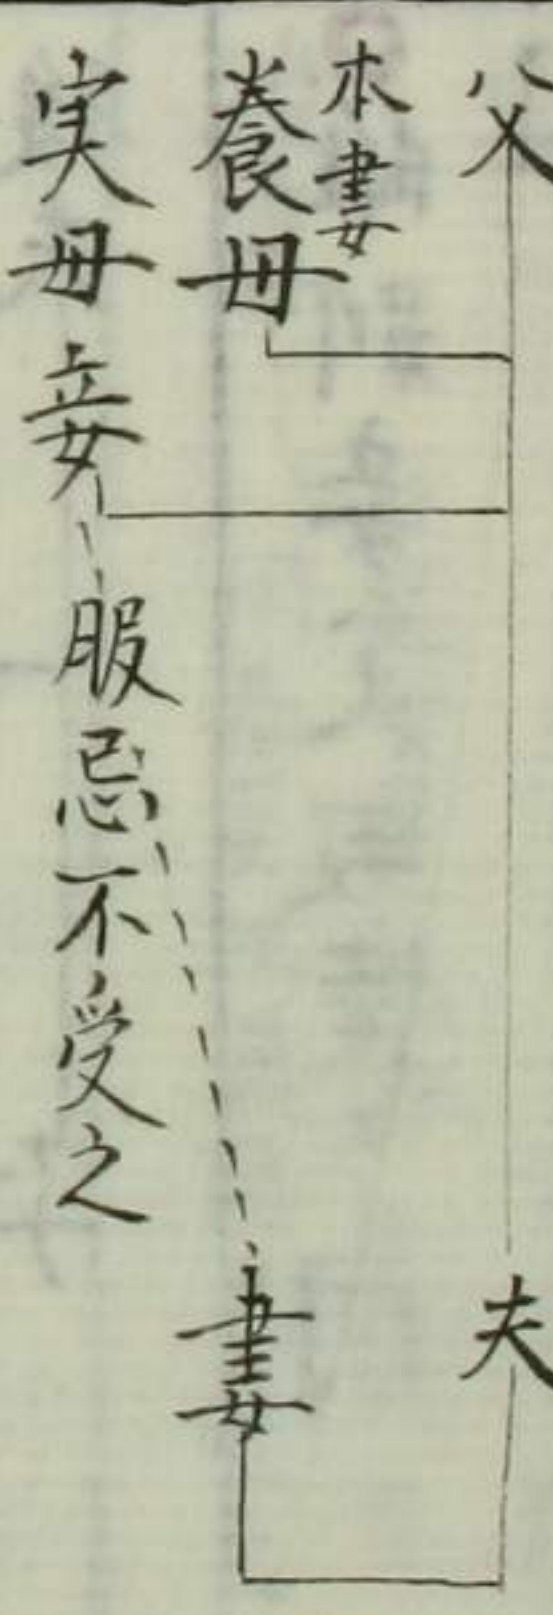 父
本妻
養母
実母妾
服忌不受之
夫
妻